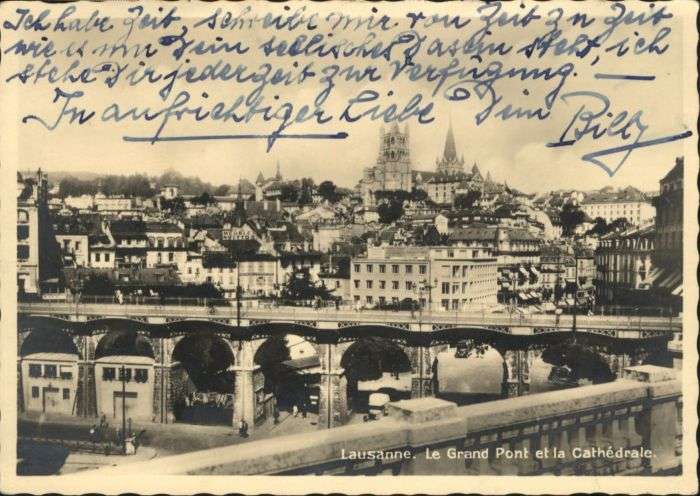 Ich habe Zeit, schreibe mir von Zeit zu Zeit
wie es um Dein seelisches Dasein steht, ich
stehe Dir jederzeit zur Verfügung. —
In aufrichtiger Liebe Dein Billy
Lausanne. Le Grand Pont et la Cathédrale.